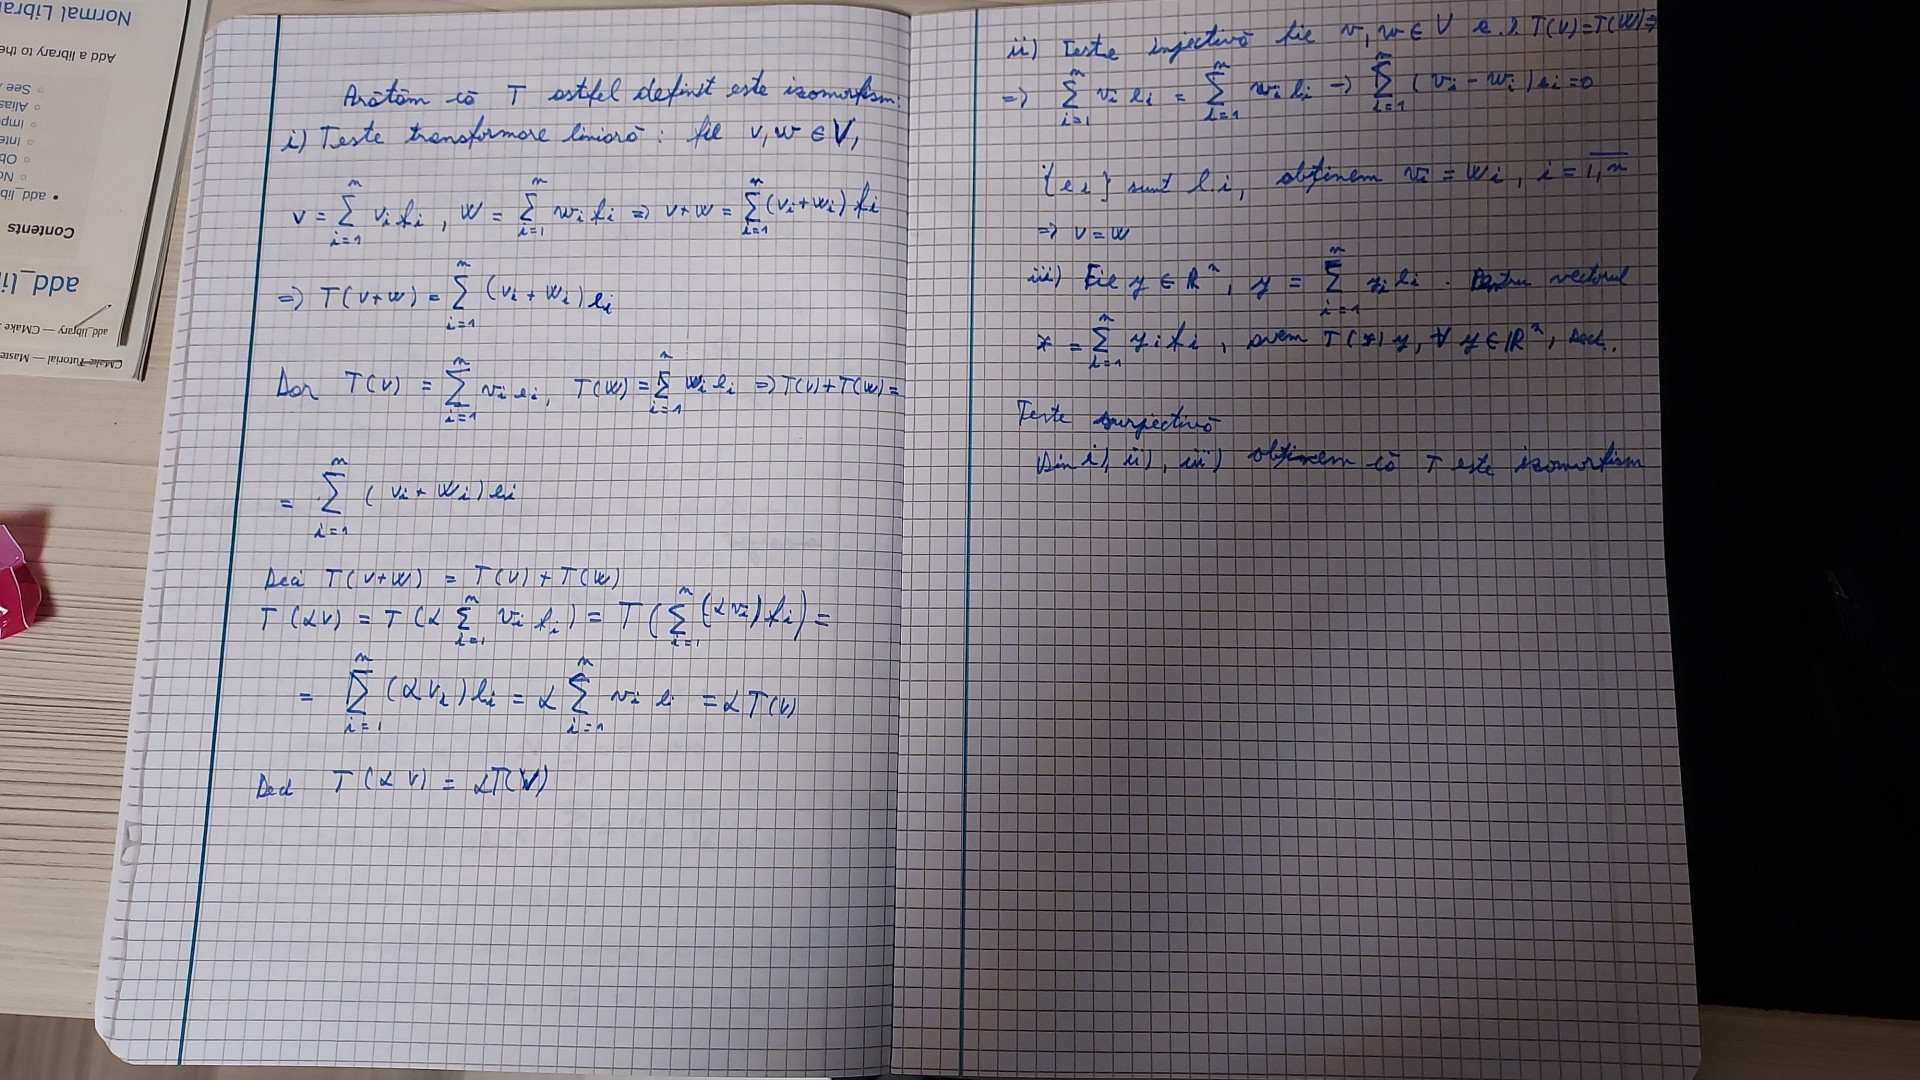 Normal Librar
Add a library to the
○ See
○ Alias
○ Imp
○ Inte
○ Ob
○ No
• add_lib
Contents
add_li
add_library — CMake
CMake Tutorial — Maste
Arătăm că T astfel definit este izomorfism:
i) T este transformare liniară : fie v, w ∈ V,
v = Σ_{i=1}^{n} v_i f_i , w = Σ_{i=1}^{n} w_i f_i => v+w = Σ_{i=1}^{n} (v_i+w_i) f_i
=> T(v+w) = Σ_{i=1}^{n} (v_i + w_i) e_i
Dar T(v) = Σ_{i=1}^{n} v_i e_i, T(w) = Σ_{i=1}^{n} w_i e_i => T(v)+T(w) =
= Σ_{i=1}^{n} (v_i + w_i) e_i
Deci T(v+w) = T(v) + T(w)
T(αv) = T(α Σ_{i=1}^{n} v_i f_i) = T(Σ_{i=1}^{n} (α v_i) f_i) =
= Σ_{i=1}^{n} (α v_i) e_i = α Σ_{i=1}^{n} v_i e = α T(v)
Deci T(α v) = αT(V)
ii) T este injectivă fie v, w ∈ V a. î. T(v)=T(w) =>
=> Σ_{i=1}^{n} v_i e_i = Σ_{i=1}^{n} w_i e_i => Σ_{i=1}^{n} (v_i - w_i) e_i = 0
{e_i} sunt l.i, obținem v_i = w_i, i = \overline{1,n}
=> v = w
iii) Fie y ∈ ℝ^n, y = Σ_{i=1}^{n} y_i e_i . Pentru vectorul
x = Σ_{i=1}^{n} y_i f_i , avem T(x) y, ∀ y ∈ ℝ^n, deci.
T este surjectivă
Din i), ii), iii) obținem că T este izomorfism